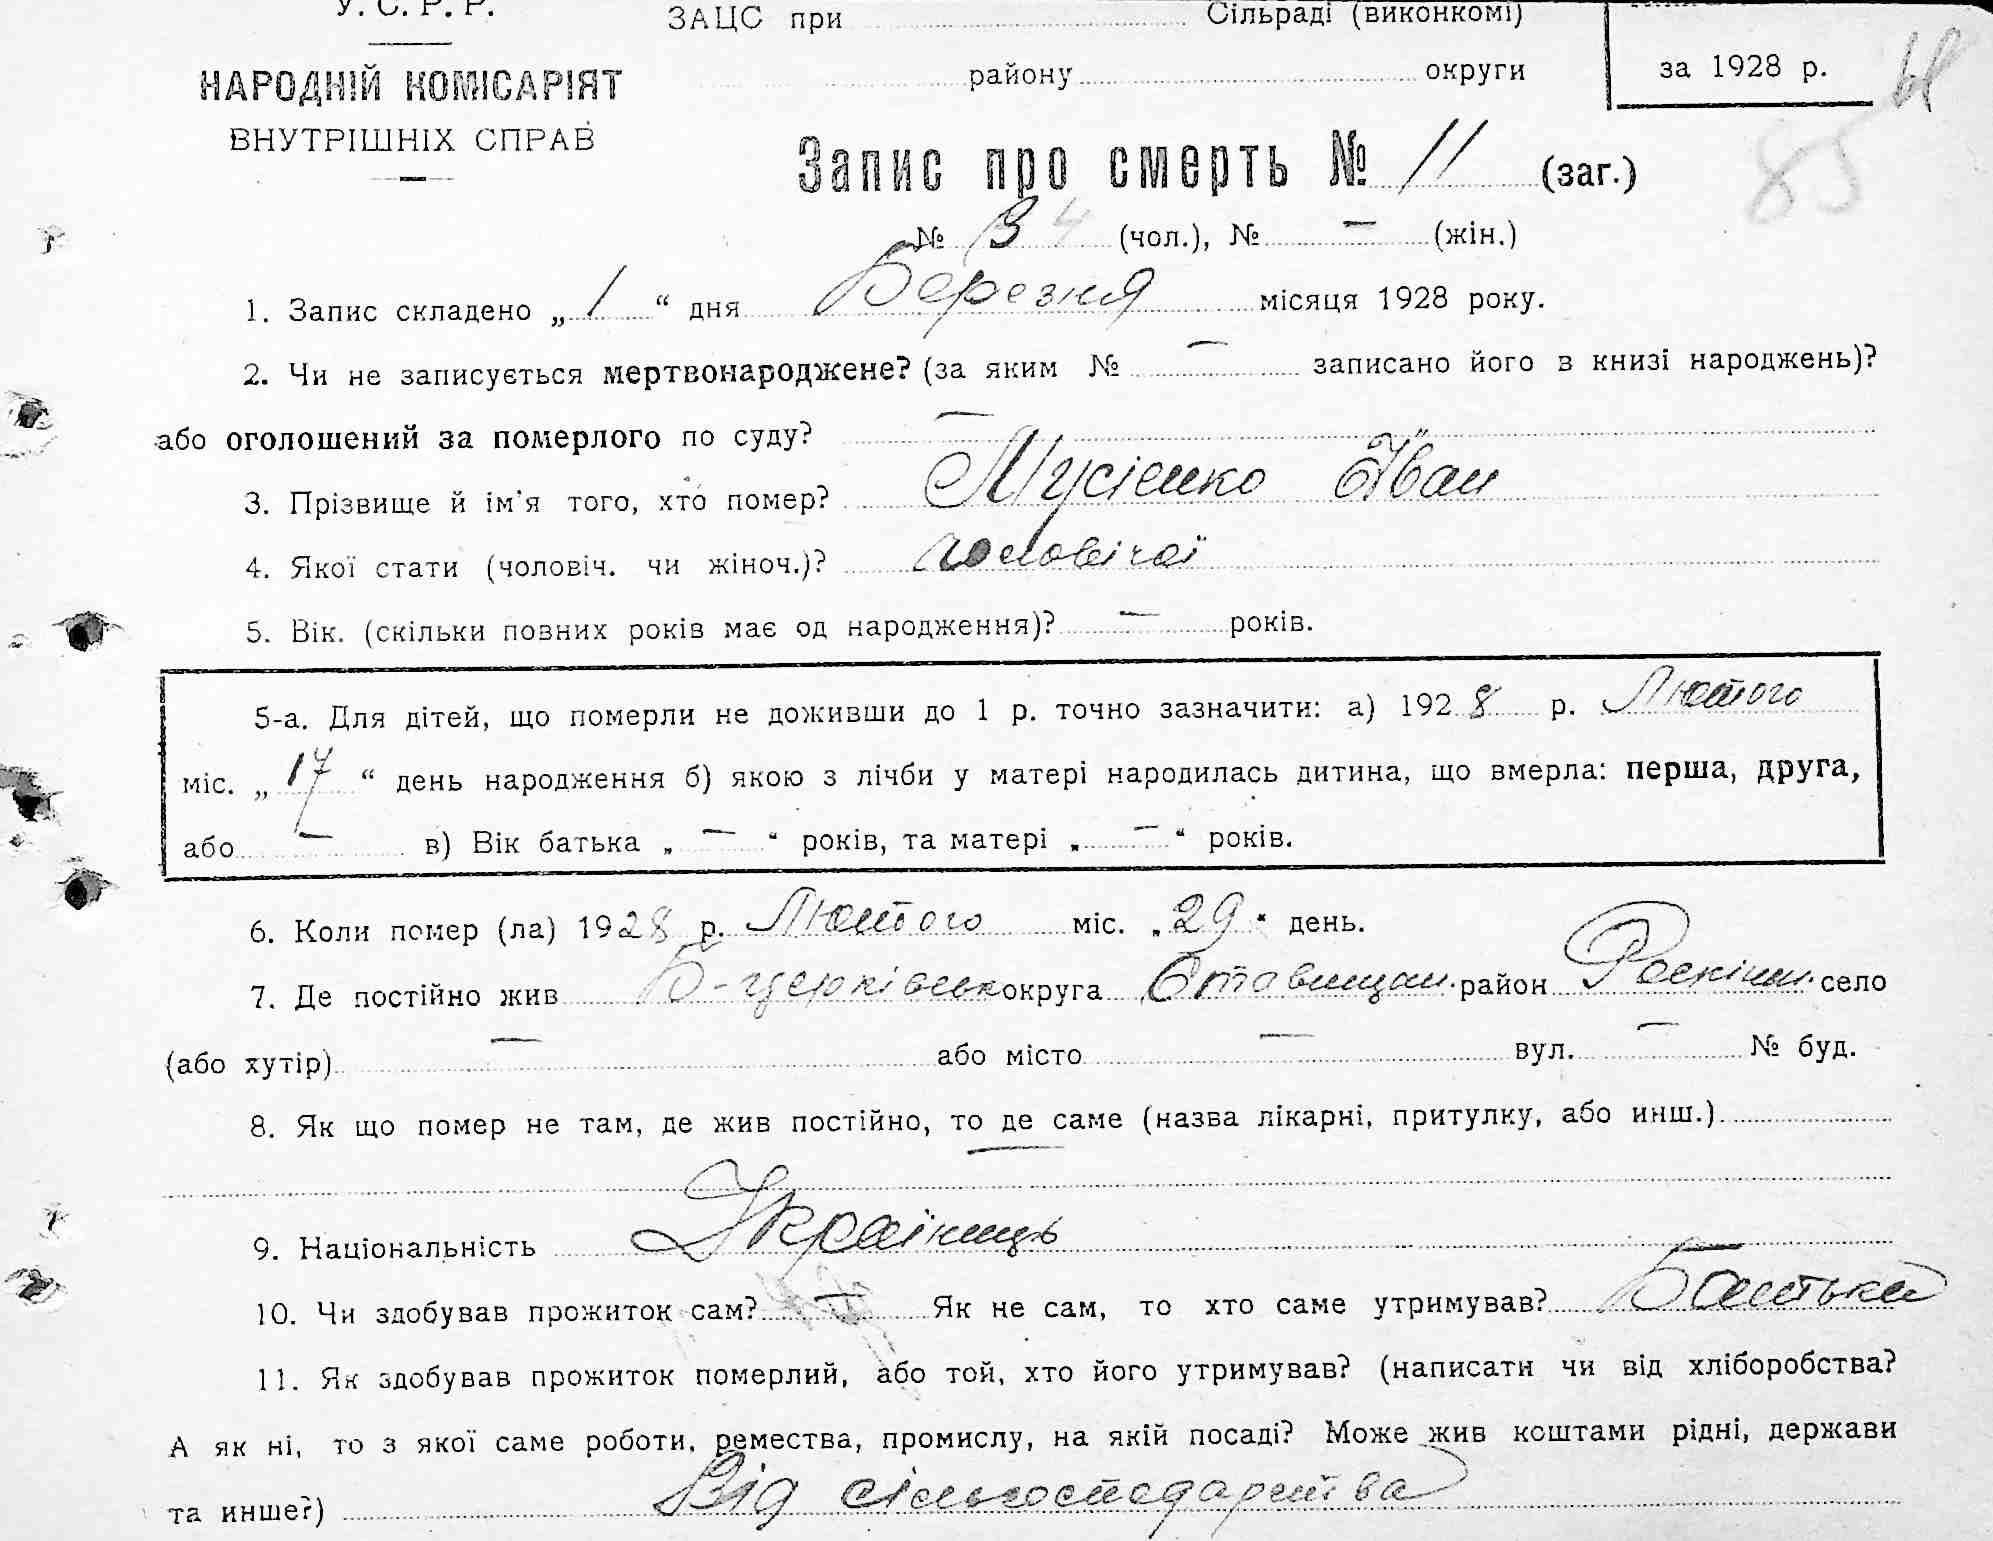 У. С. Р. Р.
ЗАЦС при Сільраді (виконкомі)
НАРОДНІЙ КОМІСАРІЯТ
ВНУТРІШНІХ СПРАВ
району округи
за 1928 р.
85
Запис про смерть № 11 (заг.)
№ 3 4 (чол.), № — (жін.)
1. Запис складено „ 1 “ дня Березня місяця 1928 року.
2. Чи не записується мертвонароджене? (за яким № — записано його в книзі народжень)?
або оголошений за померлого по суду? —
3. Прізвище й ім'я того, хто помер? Мусієнко Іван
4. Якої стати (чоловіч. чи жіноч.)? чоловічої
5. Вік. (скільки повних років має од народження)? — років.
5-а. Для дітей, що померли не доживши до 1 р. точно зазначити: а) 1928 р. Лютого
міс. „ 17 “ день народження б) якою з лічби у матері народилась дитина, що вмерла: перша, друга,
або — в) Вік батька „ — “ років, та матері „ — “ років.
6. Коли помер (ла) 1928 р. Лютого міс. „ 29 “ день.
7. Де постійно жив Б-церківськ округа Ставищан. район село
(або хутір) — або місто — вул. — № буд.
8. Як що помер не там, де жив постійно, то де саме (назва лікарні, притулку, або инш.)
—
9. Національність Українець
10. Чи здобував прожиток сам? — Як не сам, то хто саме утримував? Батьки
11. Як здобував прожиток померлий, або той, хто його утримував? (написати чи від хліборобства?
А як ні, то з якої саме роботи, ремества, промислу, на якій посаді? Може жив коштами рідні, держави
та инше?) Від сільгосподарства